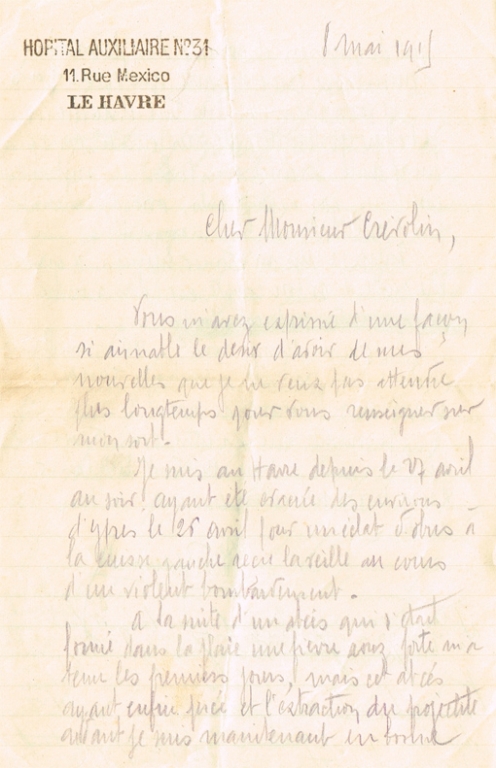 HOPITAL AUXILIAIRE Nº31
11. Rue Mexico
LE HAVRE
mai 1915
Cher Monsieur Crevolin,
Vous m'avez exprimé d'une façon
si aimable le desir d'avoir de mes
nouvelles que je ne veux pas attendre
plus longtemps pour vous renseigner sur
mon sort.
Je suis au Havre depuis le 27 avril
au soir, ayant été évacué des environs
d'Ypres le 26 avril pour un éclat d'obus à
la cuisse gauche reçu la veille au cours
d'un violent bombardement.
A la suite d'un abcès qui s'était
formé dans la plaie une fievre assez forte m'a
tenu les premiers jours, mais cet abcès
ayant enfin percé et l'extraction du projectile
ayant je suis maintenant en bonne